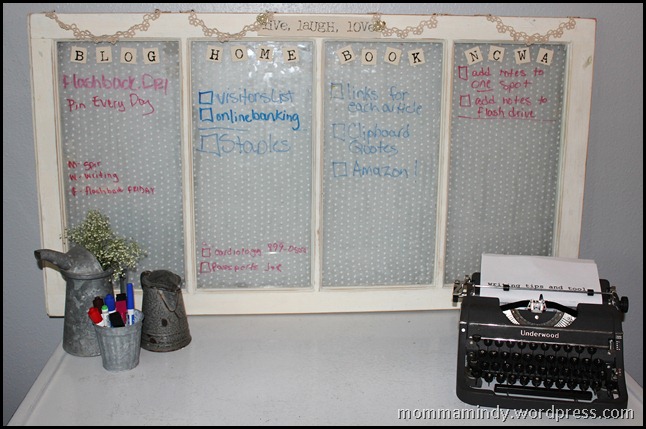 live, laugh, love
BLOG
Flashback
Pin Every Day
W-writing
F-flashback FRIDAY
HOME
visitors List
online banking
Staples
cardiology
Passports
BOOK
links for
each article
Clipboard
Quotes
Amazon!
NCWA
add notes to
one spot
add notes to
flash drive
writing tips and tool
Underwood
mommamindy.wordpress.com